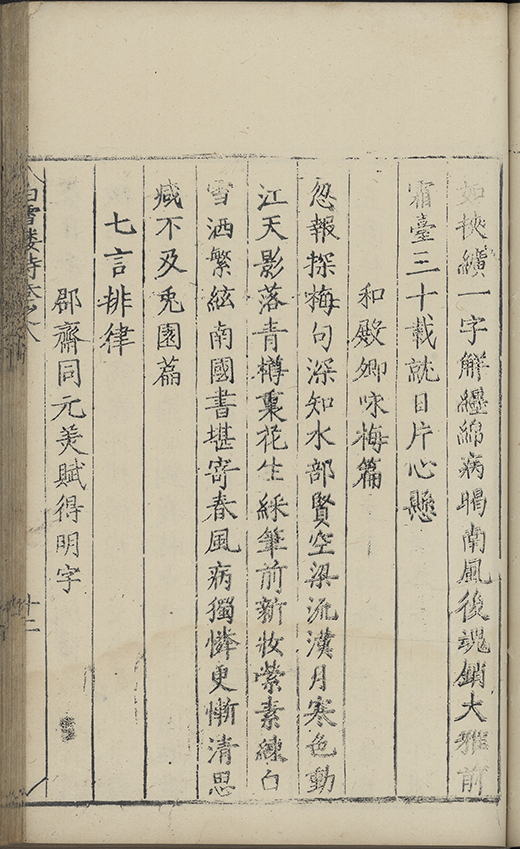 如挾纊一字解纏綿病暍南風後魂銷大雅前
霜臺三十載就日片心懸
和殿卿咏梅篇
忽報探梅句深知水部賢空梁流漢月寒色動
江天影落青樽裏花生綵筆前新妝縈素練白
雪洒繁絃南國書堪寄春風病獨憐更慚清思
減不及兎園篇
七言排律
郡齋同元美賦得明字
白雪樓詩集卷之八
十二